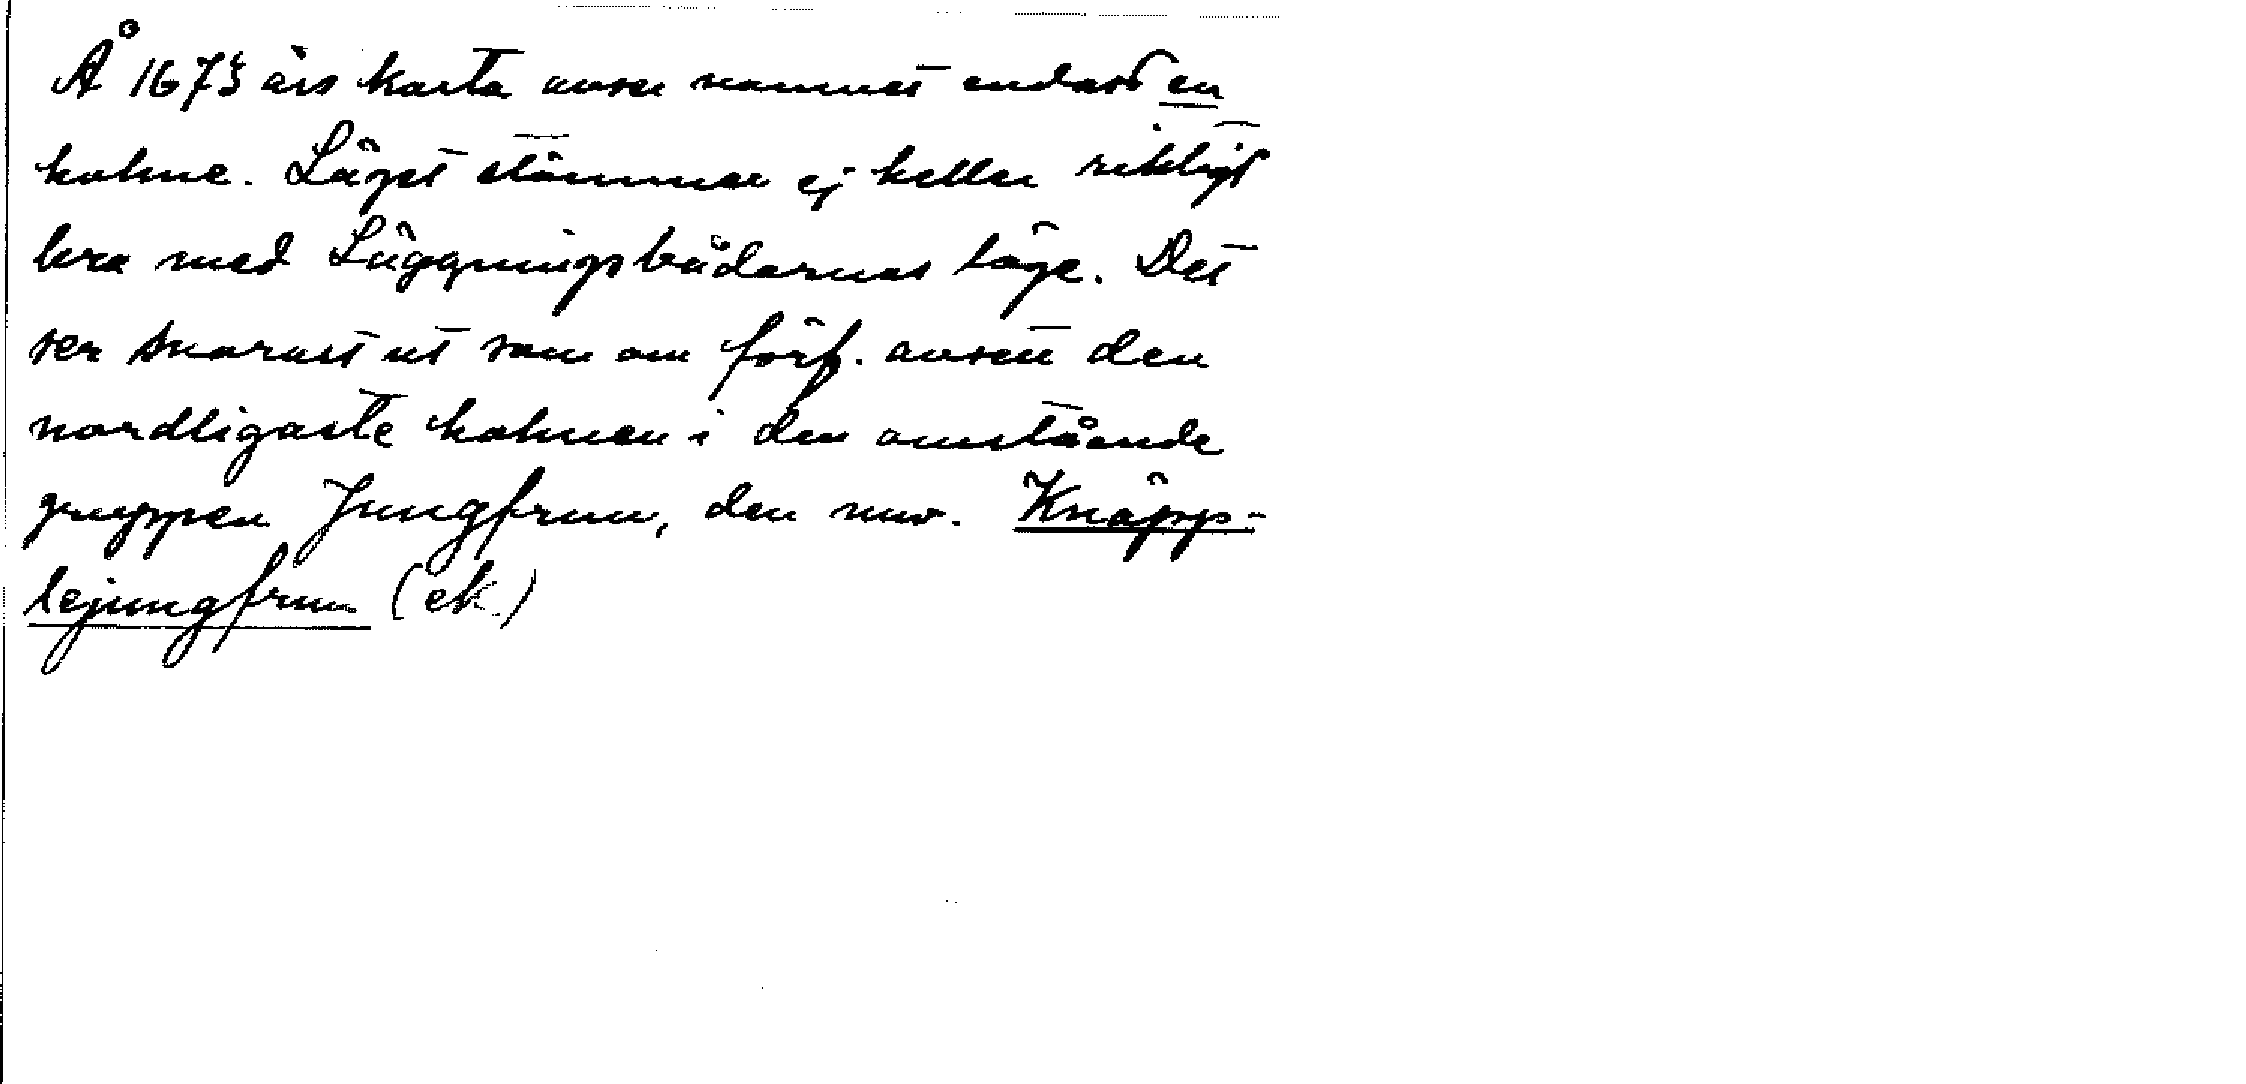 Å 1673 års karta avser namnet endast en
holme. Läget stämmer ej heller riktigt
bra med Läggningsbådarnas läge. Det
ser snarast ut som om förf. avsett den
nordligaste holmen i den omstående
gruppen Jungfrun, den nuv. Knäpp-
lejungfrun (ek.)